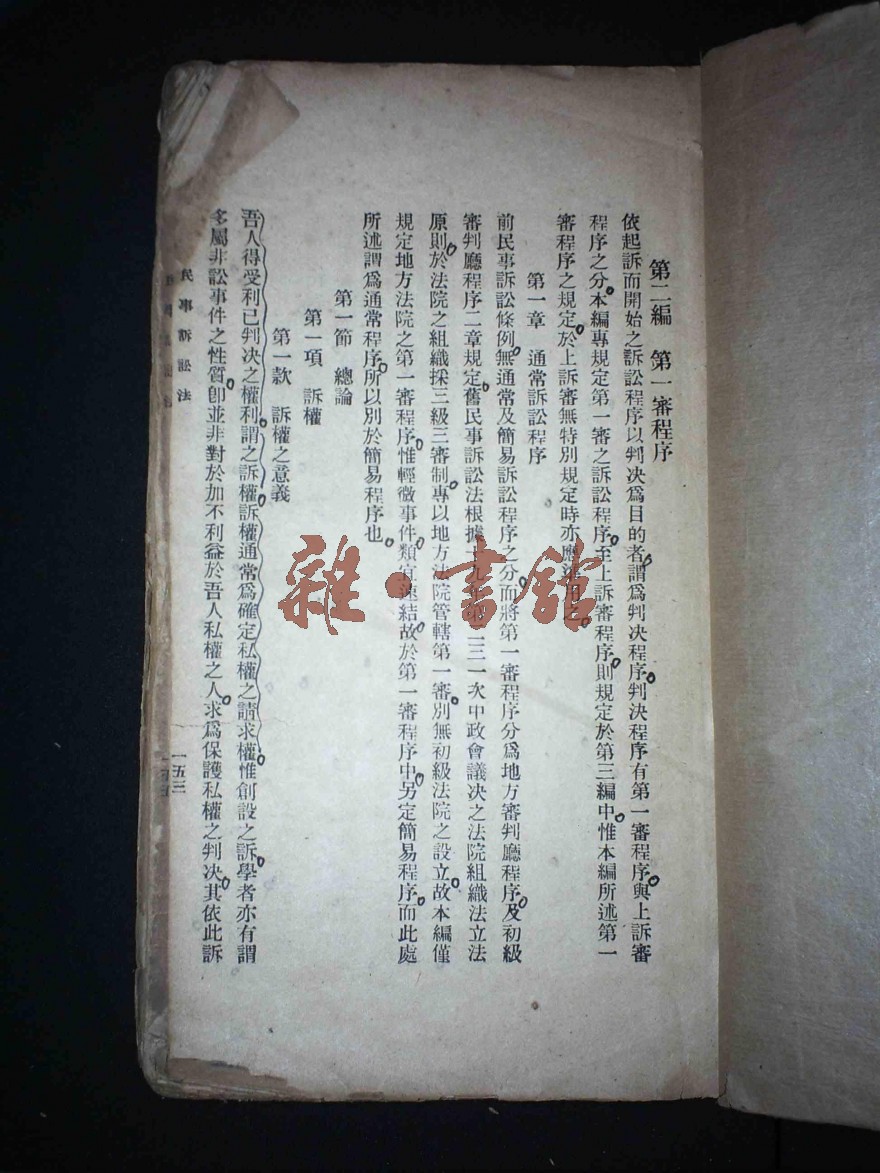 第二編　第一審程序
依起訴而開始之訴訟程序以判决爲目的者謂爲判决程序判决程序有第一審程序與上訴審
程序之分本編專規定第一審之訴訟程序至上訴審程序則規定於第三編中惟本編所述第一
審程序之規定於上訴審無特別規定時亦應
第一章　通常訴訟程序
前民事訴訟條例無通常及簡易訴訟程序之分而將第一審程序分爲地方審判廳程序及初級
審判廳程序二章規定舊民事訴訟法根據十九年第二三一次中政會議决之法院組織法立法
原則於法院之組織採三級三審制專以地方法院管轄第一審別無初級法院之設立故本編僅
規定地方法院之第一審程序惟輕微事件類宜速結故於第一審程序中另定簡易程序而此處
所述謂爲通常程序所以別於簡易程序也
第一節　總論
第一項　訴權
第一款　訴權之意義
吾人得受利己判决之權利謂之訴權訴權通常爲確定私權之請求權惟創設之訴學者亦有謂
多屬非訟事件之性質卽並非對於加不利益於吾人私權之人求爲保護私權之判决其依此訴
民事訴訟法
一五三
雜·書館